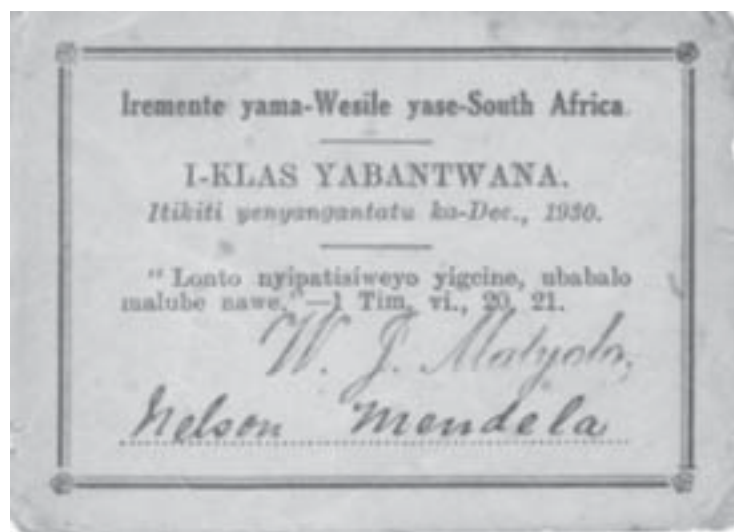 Iremente yama-Wesile yase-South Africa.
I-KLAS YABANTWANA.
Itikiti yenyangantatu ka-Dec., 1930.
" Lonto nyipatisiweyo yigcine, ubabalo
malube nawe."—1 Tim. vi., 20, 21.
W. J. Matyolo,
Nelson Mendela